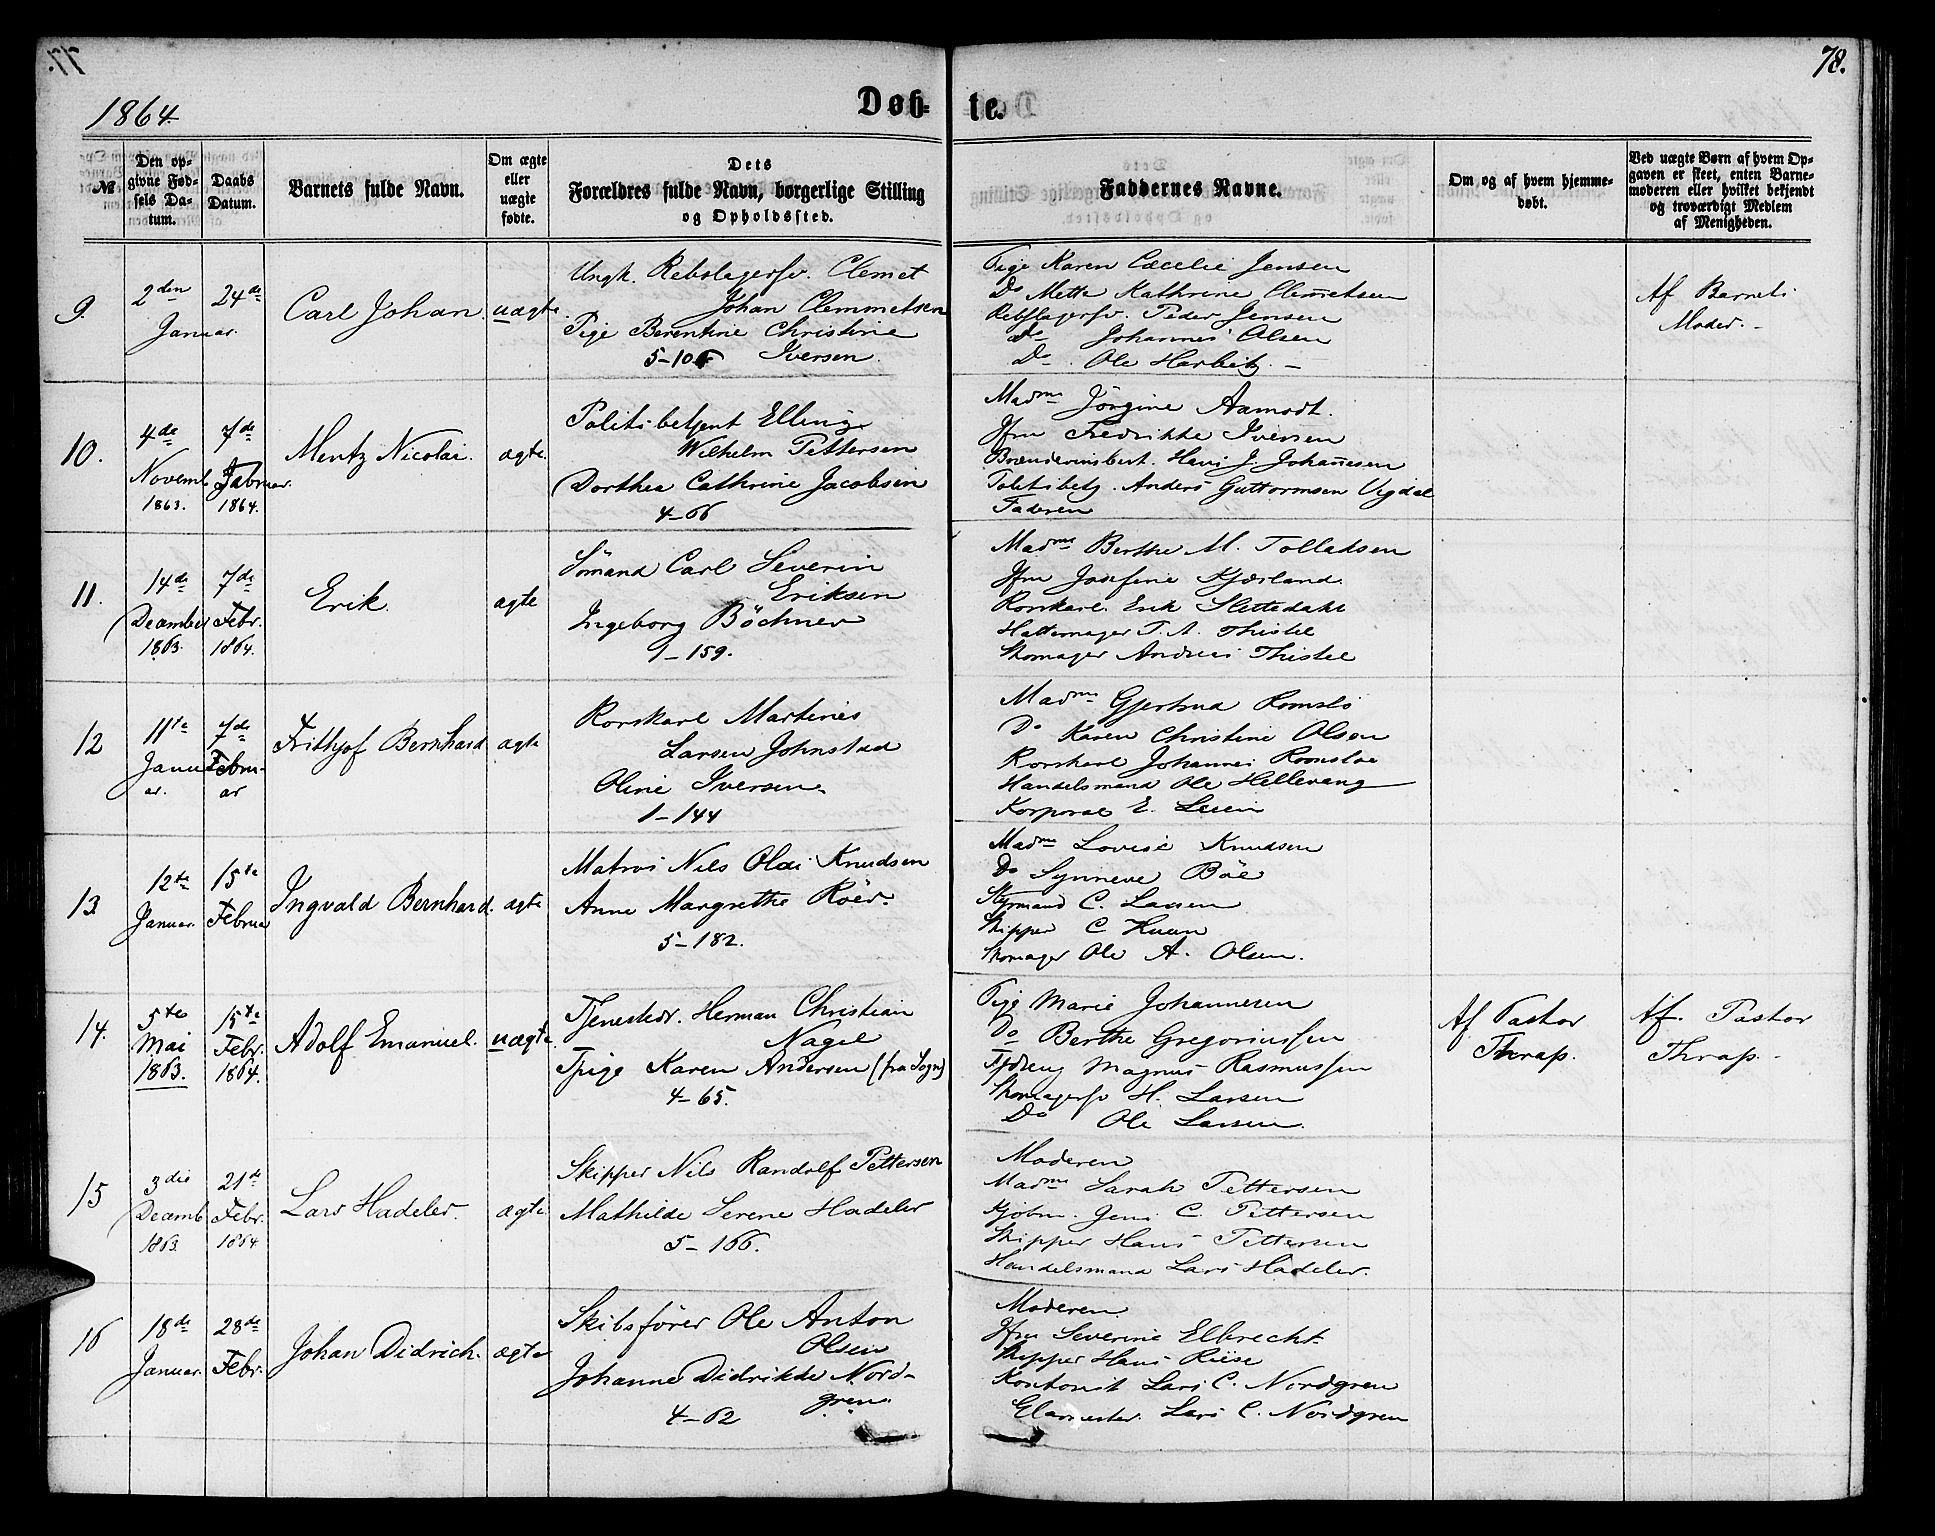 77.
78.
1864.
Døb-
te.
№
Den op-
givne Fød-
sels Da-
tum.
Daabs
Datum.
Barnets fulde Navn.
Om ægte
eller
uægte
fødte.
Dets
Forældres fulde Navn, borgerlige Stilling
og Opholdssted.
Faddernes Navne.
Om og af hvem hjemme-
døbt.
Ved uægte Børn af hvem Op-
gaven er skeet, enten Barne-
moderen eller hvilket bekjendt
og troværdigt Medlem
af Menigheden.
9.
2den
Januar.
24de
Carl Johan.
uægte.
Ungk. Rebslagersv. Clemet
Johan Clemmetsen
Pige Berentine Christine
Iversen.
5-106
Pige Karen Cæcelie Jensen
Do Mette Kathrine Clemetsen
Rebslagersv. Peder Jensen
Do Johannes Olsen
Do Ole Harbitz. -
Af Barnets
Moder. -
10.
4de
Novemb
1863.
7de
Februar.
1864.
Mentz Nicolai.
ægte.
Politibetjent Elling
Wilhelm Pettersen
Dorthea Cathrine Jacobsen
4-66
Madme Jörgine Aamodt.
Jfru Fredrikke Iversen
Brænderinsbest. Hans J. Johannesen
Politibetj. Anders Guttormsen Vigdal
Faderen
11.
14de
December
1863.
7de
Febr.
1864.
Erik.
ægte
Sömand Carl Severin
Eriksen
Ingeborg Böchner
1-159.
Madme Berthe M. Tolladsen
Jfru Josefine Kjærland.
Rorskarl. Erik Slettedahl
Hattemager T. A. Thistel
Skomager Andreas Thistel
12
11te
Janu
ar.
7de
Febru-
ar
Frithjof Bernhard
ægte
Rorskarl Martines
Larsen Johnstad
Oline Iversen.
1-144
Madme Gjertrud Romslo
Do Karen Christine Olsen
Rorskarl Johannes Romsloe
Handelsmand Ole Hellevang
Korporal E. Leiein
13.
12te
Januar.
15te
Februar
Ingvald Bernhard.
ægte
Matros Nils Olai Knudsen
Anne Margrethe Röer.
5-182.
Madme Lovise Knudsen
Do Synneve Böe
Styrmand C. Larsen
Skipper C Huun
Skomager Ole A. Olsen.
14.
5te
Mai
1863.
15te
Febr.
1864.
Adolf Emanuel.
uægte.
Tjenestdr. Herman Christian
Nagel
Tpige Karen Andersen (fra Sogn)
4-65.
Pige Marie Johannesen
Do Berthe Gregoriussen
Tjdreng Magnus Rasmussen
Skomagersv H. Larsen
Do Ole Larsen.
Af Pastor
Thrap.
Af Pastor
Thrap. -
15
3die
Decemb
1863.
21de
Febr.
1864
Lars Hadeler.
ægte
Skipper Nils Randolf Pettersen
Mathilde Serene Hadeler
5-166.
Moderen
Madme Sarah Pettersen
Kjöbm. Jens C. Pettersen
Skipper Hans Pettersen
Handelsmand Lars Hadeler.
16
18de
Januar.
28de
Febr.
Johan Didrich.
ægte
Skibsförer Ole Anton
Olsen
Johanne Didrikke Nord-
gren.
4-62
Moderen
Jfru Severine Elbrecht
Skipper Hans Riise
Kontorist Lars C. Nordgren
Glarmester Lars C. Nordgren